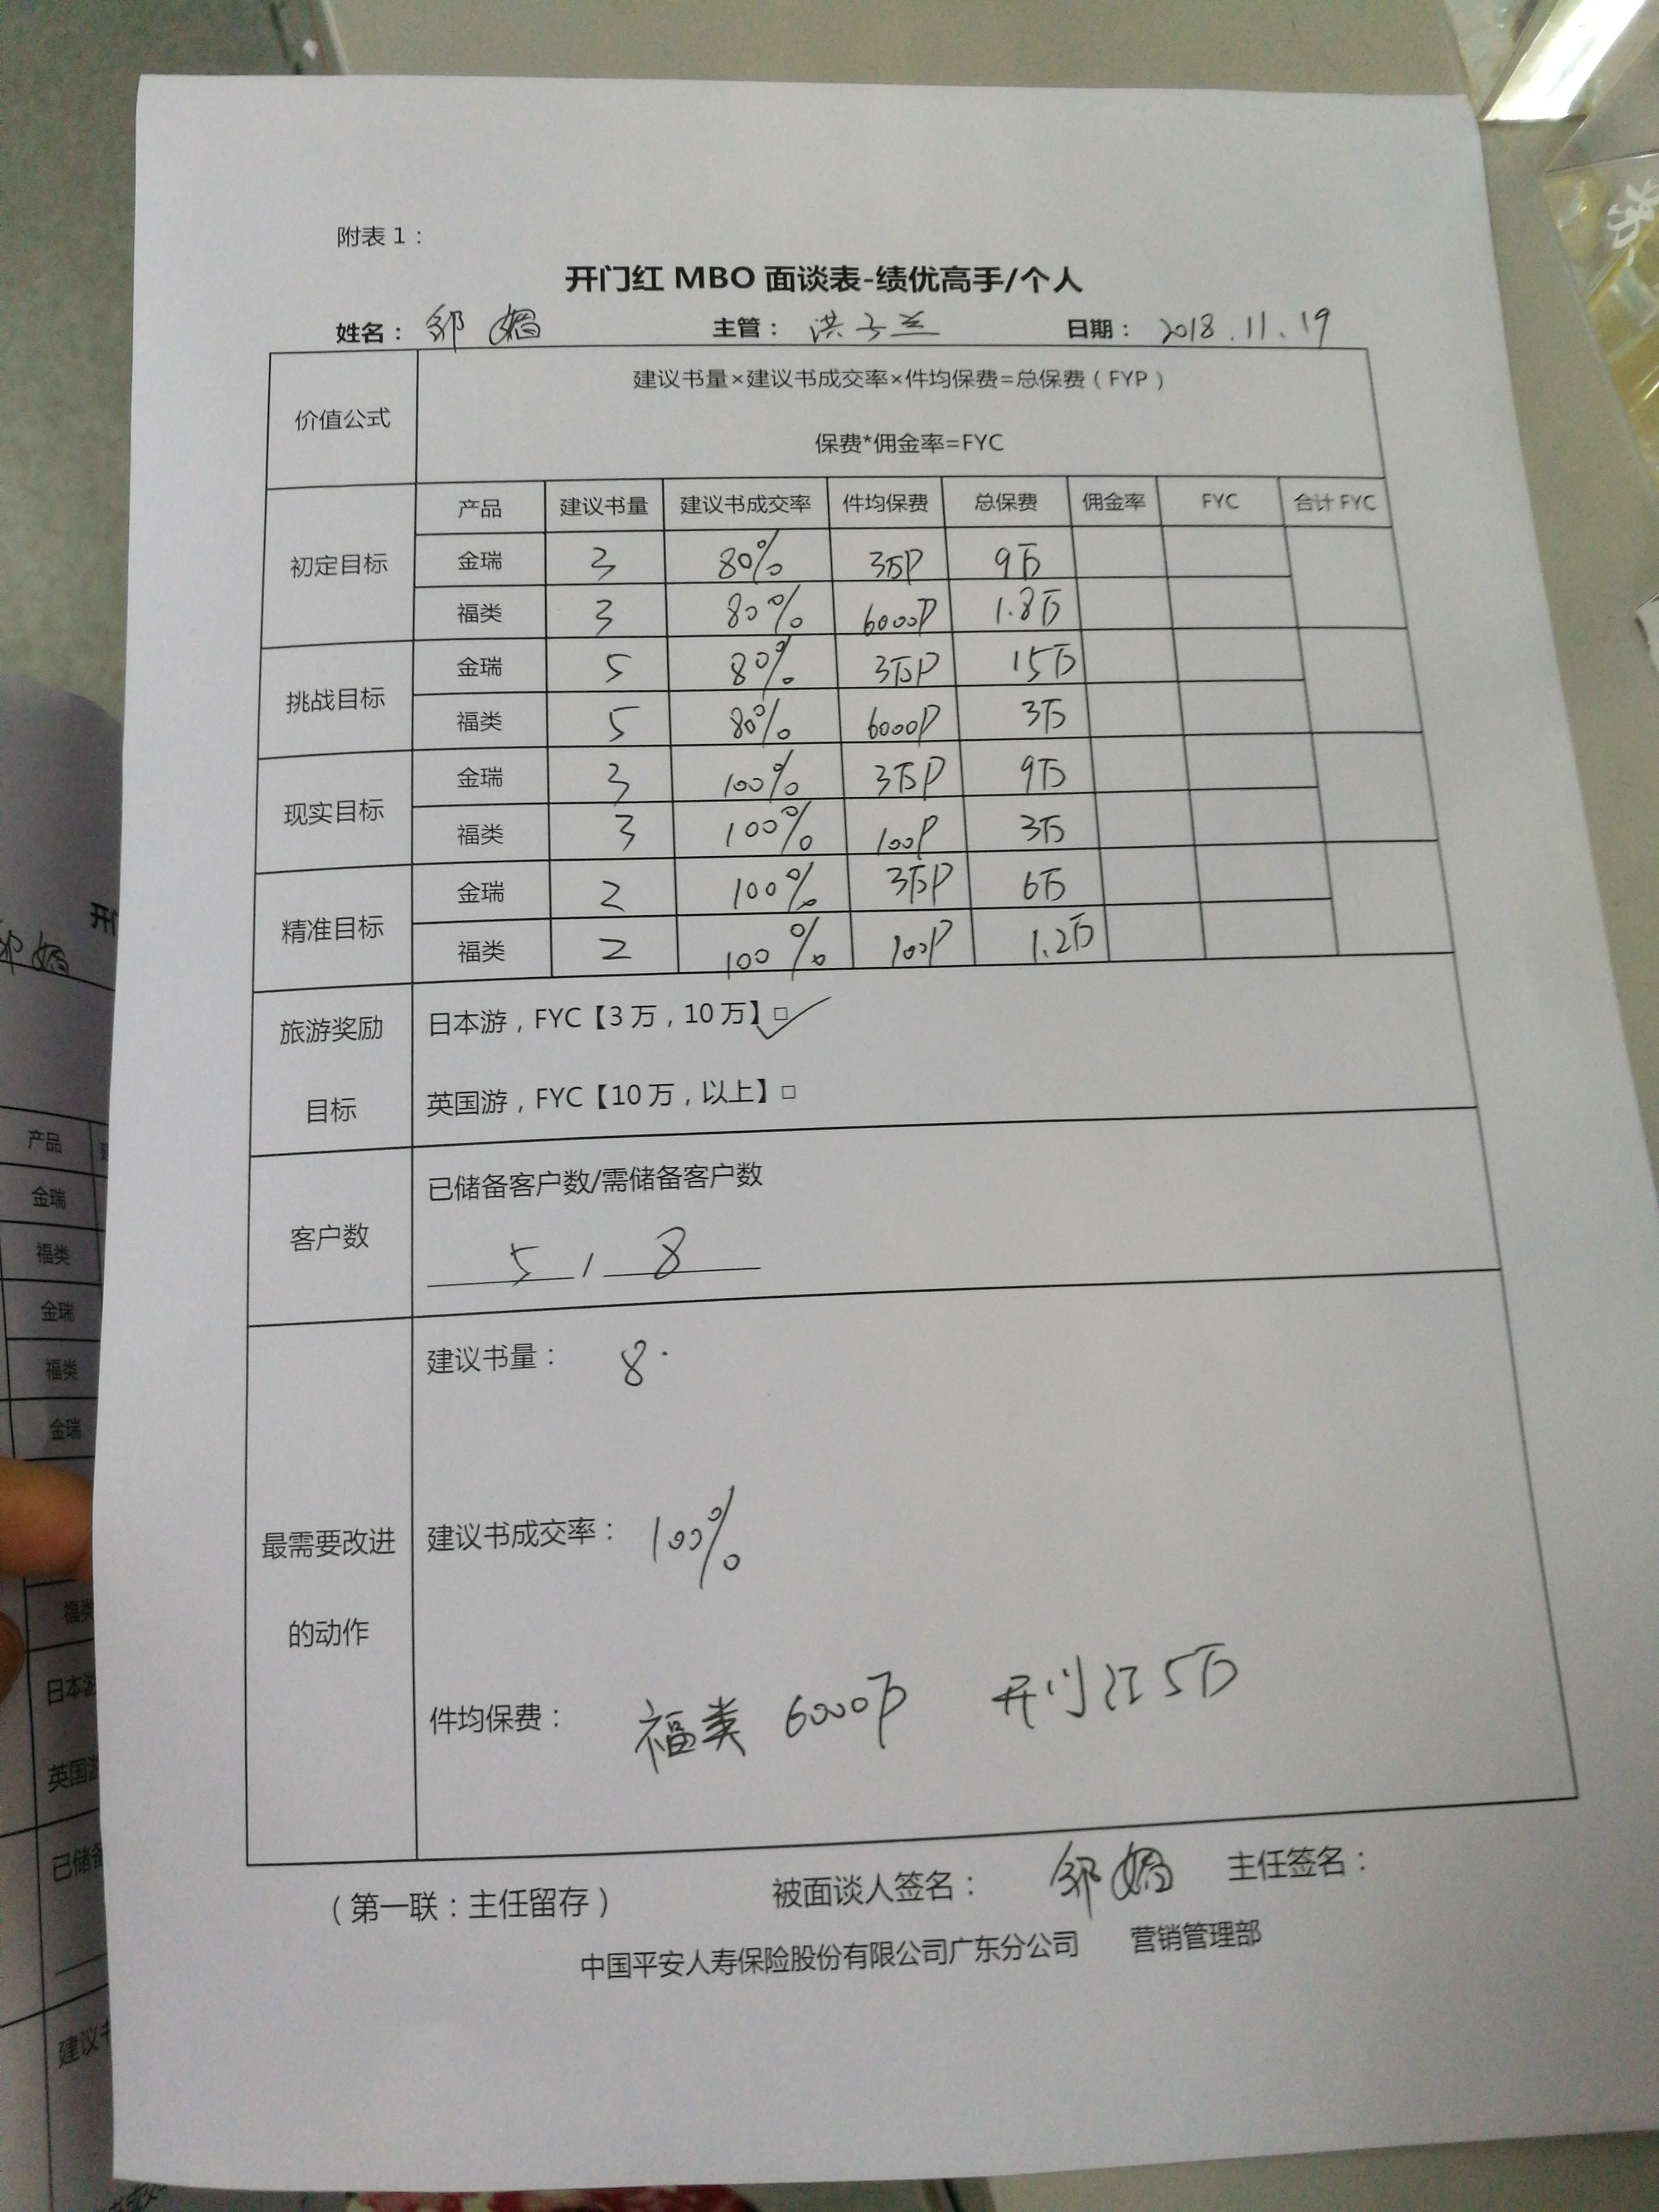 附表 1：
开门红 MBO 面谈表-绩优高手/个人
姓名： 邹 嫦 主管： 洪子兰 日期： 2018.11.19
价值公式
建议书量×建议书成交率×件均保费=总保费（FYP）
保费*佣金率=FYC
产品 建议书量 建议书成交率 件均保费 总保费 佣金率 FYC 合计 FYC
初定目标
金瑞 3 80% 3万P 9万
福类 3 80% 6000P 1.8万
挑战目标
金瑞 5 80% 3万P 15万
福类 5 80% 6000P 3万
现实目标
金瑞 3 100% 3万P 9万
福类 3 100% 100P 3万
精准目标
金瑞 2 100% 3万P 6万
福类 2 100% 100P 1.2万
旅游奖励
目标
日本游，FYC【3 万，10 万】□✓
英国游，FYC【10 万，以上】□
客户数
已储备客户数/需储备客户数
5 / 8
最需要改进
的动作
建议书量： 8.
建议书成交率： 100%
件均保费： 福类 6000P 开门红 5万
（第一联：主任留存） 被面谈人签名： 邹嫦 主任签名：
中国平安人寿保险股份有限公司广东分公司 营销管理部
产品
金瑞
福类
金瑞
福类
金瑞
福类
日本游
英国游
已储备
建议书